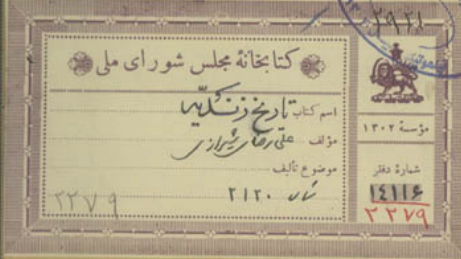 ۲۹۲۸
کتابخانهٔ مجلس شورای ملی
اسم کتاب تاریخ زندیه
مؤلف علی رضای شیرازی
موضوع تألیف
۲۱۲۰
۲۲۷۹
مؤسسهٔ ۱۳۰۲
شمارهٔ دفتر
۱۴۱۱۶
۲۲۷۹